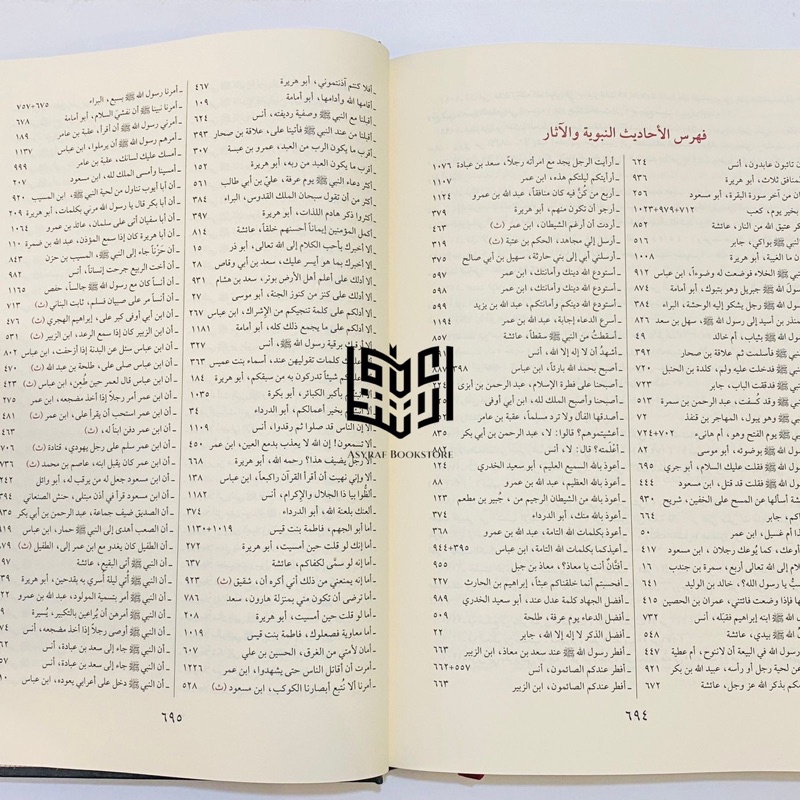 فهرس الأحاديث النبوية والآثار
تائبون عابدون، أنس ٦٢٤
المنافق ثلاث، أبو هريرة ٩٣٦
من آخر سورة البقرة، أبو مسعود ٢٥٦
بخير يوم، كعب ٧١٢+٩٧٩+١٠٢٣
بكر عتيق الله من النار، عائشة ٨٥٢
ﷺ بواكي، جابر ٥١٦
ما الغيبة، أبو هريرة ١٠٠٨
ﷺ الخلاء فوضعت له وضوءاً، ابن عباس ٩١٢
رسول الله ﷺ جبريل وهو بتبوك، أبو أمامة
رسول الله ﷺ رجل يشكو إليه الوحشة، البراء ٣٨٤
المنذر بن أسيد إلى رسول الله ﷺ، سهل بن سعد ٨٢٦
الله ﷺ بثياب، أم خالد ٤٩
ﷺ فأسلمت ثم علاقة بن صحار ٣٩٢
ﷺ فدخلت عليه ولم، كلدة بن الحنبل ٧٢٠
ﷺ فدققت الباب، جابر ٧٢٣
ﷺ وقد كُسفت، عبد الرحمن بن سمرة ٥١٣
ﷺ وهو يبول، المهاجر بن قنفذ ٧٢
ﷺ يوم الفتح وهو، أم هانىء ٧٠٢+٧٢٤
الله ﷺ بوضوء، أبو موسى ٨٢
الله ﷺ فقلت عليك السلام، أبو جري
الله ﷺ فقلت قد قتل، ابن مسعود ٤٤٤
عائشة أسألها عن المسح على الخفين، شريح ٩٣٠
جابر ٦٦٤
أم غسيل، ابن عمر
٤١٧
إلى الله تعالى أربع، سمرة بن جندب ١٦
رسول الله؟، خالد بن الوليد ٦٤١
فإذا وضعت فائتني، عمران بن الحصين ٤١٥
الله ﷺ ابنه إبراهيم فقبّله، أنس ٧٣٢
الله ﷺ بيدي، عائشة ٥٤٨
رسول الله ﷺ في البيعة أن لا ننوح، أم عطية ٤٤٧
لحية رجل أو رأسه، عبيد الله بن بكر ٩٢١
بذكر الله عز وجل، عائشة ٦٧٢
ـ أرأيت الرجل يجد مع امرأته رجلاً، سعد بن عبادة ١٠٧٦
ـ أرأيتكم ليلتكم هذه، ابن عمر ١١٠٧
ـ أربع من كُنَّ فيه كان منافقاً، عبد الله بن عمرو ١١٢٤
ـ أرجو أن تكون منهم، أبو هريرة ٣٧٩
ـ أردت أن أرغم الشيطان، ابن عمر ٤٦٣
ـ أرسل إلي مجاهد، الحكم بن عتبة (ث) ٣١٩
ـ أرسلني أبي إلى بني حارثة، سهيل بن أبي صالح ٣٧٥
ـ أستودع الله دينك وأمانتك، ابن عمر ٥٩٧
ـ أستودع الله دينك وأمانتك، ابن عمر ٥٩٨
ـ أستودع الله دينكم وأمانتكم، عبد الله بن يزيد ٥٩٩
ـ أسرع الدعاء إجابة، عبد الله بن عمرو ١١٩٤
ـ أسقطتُ من النبي ﷺ سقطاً، عائشة ٨٥٧
ـ أشهدُ أن لا إله إلا الله، أنس
ـ أصبح بحمد الله بارئاً، ابن عباس
ـ أصبحنا على فطرة الإسلام، عبد الرحمن بن أبزى ٢٢٤
ـ أصبحنا وأصبح الملك لله، ابن أبي أوفى
ـ أصدقها الفأل ولا ترد مسلماً، عقبة بن عامر
ـ أعشيتموهم؟ قالوا: لا، عبد الرحمن بن أبي بكر
ـ أعلمته؟ قال: لا، أنس ٨٣٥
ـ أعوذ بالله السميع العليم، أبو سعيد الخدري ١٢٤
ـ أعوذ بالله العظيم، عبد الله بن عمرو ٨٨
ـ أعوذ بالله من الشيطان الرجيم من، جُبير بن مطعم ١٢٣
ـ أعوذ بالله منك، أبو الدرداء ٣٧٤
ـ أعوذ بكلمات الله التامة، عبد الله بن عمرو ٣٦٨
ـ أعيذكما بكلمات الله التامة، ابن عباس ٣٩٥+٩٤٤
ـ أفتَّانٌ أنت يا معاذ؟، معاذ بن جبل ٩٥٥
ـ أفحسبتم أنما خلقناكم عبثاً، إبراهيم بن الحارث ٢٢٧
ـ أفضل الجهاد كلمة عدل عند، أبو سعيد الخدري ٩٨٦
ـ أفضل الدعاء يوم عرفة، طلحة ٥٠٩
ـ أفضل الذكر لا إله إلا الله، جابر ٢٢
ـ أفطر رسول الله ﷺ عند سعد بن معاذ، ابن الزبير ٦٦٣
ـ أفطر عندكم الصائمون، أنس ٥٥٧+٦٦٢
ـ أفطر عندكم الصائمون، ابن الزبير ٦٦٣
٦٩٤
ـ أفلا كنتم آذنتموني، أبو هريرة ٤٦٧
ـ أقامها الله وأدامها، أبو أمامة ١٠٩
ـ أقبلنا مع النبي ﷺ وصفية رديفته، أنس ٦٢٤
ـ أقبلنا من عند النبي ﷺ فأتينا على، علاقة بن صحار ٣٩٣
ـ أقرب ما يكون الرب من العبد، عمرو بن عبسة ٣٠٧
ـ أقرب ما يكون العبد من ربه، أبو هريرة ١٥٢
ـ أكثر دعاء النبي ﷺ يوم عرفة، عليّ بن أبي طالب ٥٦١
ـ أكثر من أن تقول سبحان الملك القدوس، البراء ٣٨٤
ـ أكثروا ذكر هادم اللذات، أبو هريرة ٣٩٧
ـ أكمل المؤمنين إيماناً أحسنهم خلقاً، عائشة ٨١٤
ـ ألا أخبرك بأحب الكلام إلى الله تعالى، أبو ذر ١٥
ـ ألا أخبرك بما هو أيسر عليك، سعد بن أبي وقاص ٢٨
ـ ألا أدلك على أعلم أهل الأرض بوتر، سعد بن هشام ٩٣١
ـ ألا أدلك على كنز من كنوز الجنة، أبو موسى ٢٧
ـ ألا أدلكم على كلمة تنجيكم من الإشراك، ابن عباس ٢٦٧
ـ ألا أدلكم على ما يجمع ذلك كله، أبو أمامة ١١٨١
ـ ألا أرقيك برقية رسول الله ﷺ، أنس ٣٢٧
ـ ألا أعلمك كلمات تقولهن عند، أسماء بنت عميس ٣٦٣
شيئاً تدركون به من سبقكم، أبو هريرة ١٨٤
بأكبر الكبائر، أبو بكرة ١٠٣٥
بخير أعمالكم، أبو الدرداء ٣٤
ـ ألا إن الناس قد صلوا ثم رقدوا، أنس ١١٠٩
ـ ألا تسمعون؟ إن الله لا يعذب بدمع العين، ابن عمر ٤٥٠
ـ ألا رجل يضيف هذا؟ رحمه الله، أبو هريرة ٦٦٨
ـ ألا وإني نهيت أن أقرأ القرآن راكعاً، ابن عباس ١٣٨
ـ ألظُّوا بيا ذا الجلال والإكرام، أنس ١١٨٢
ـ ألعنك بلعنة الله، أبو الدرداء ٣٧٤
ـ أما أبو الجهم، فاطمة بنت قيس ١٠١٩+١١٣٠
ـ أما إنك لو قلت حين أمسيت، أبو هريرة ٢٧٢
ـ أما إنه لو سمَّى لكفاكم، عائشة ٦٣٧
ـ أما إنه يمنعني من ذلك أني أكره أن، شقيق (ث) ٩٢٣
ـ أما ترضى أن تكون مني بمنزلة هارون، سعد ٧٨٦
ـ أما لو قلت حين أمسيت، أبو هريرة ٢٠٨
ـ أما معاوية فصعلوك، فاطمة بنت قيس ١٠١٩
ـ أمان لأمتي من الغرق، الحسين بن علي ٦٠٧
ـ أمرت أن أقاتل الناس حتى يشهدوا، ابن عمر ١٢٢٦
ـ أمرنا ألا نُتبع أبصارنا الكوكب، ابن مسعود (ث) ٥٢٨
ـ أمرنا رسول الله ﷺ بسبع، البراء ٦٧٥+٧٥٧
ـ أمرنا نبينا ﷺ أن نفشي السلام، أبو أمامة ٦٧٨
ـ أمرني رسول الله ﷺ أن أقرأ، عقبة بن عامر ١٨٩
ـ أمرهم رسول الله ﷺ أن يرملوا، ابن عباس ١١٣٧
ـ أمسك عليك لسانك، عقبة بن عامر ٩٩٩
ـ أمسينا وأمسى الملك لله، ابن مسعود ٢٠٧
ـ أن أبا أيوب تناول من لحية النبي ﷺ، ابن المسيب ٩٢٠
ـ أن أبا بكر قال يا رسول الله مرني بكلمات، أبو هريرة ٢٠٩
ـ أن أبا سفيان أتى على سلمان، عائذ بن عمرو ١٠٦٤
ـ أن أبا هريرة كان إذا سمع المؤذن، عبد الله بن ضمرة ١١٠
ـ أن حَزْناً جاء إلى النبي ﷺ، المسيب بن حزن ٨٤٣
ـ أن أخت الربيع جرحت إنساناً، أنس ٩٨٢
ـ أن أنساً كان مع رسول الله ﷺ جالساً، حفص ١١٦٥
ـ أن أنساً مر على صبيان فسلم، ثابت البناني (ث) ٧١٣
ـ أن ابن أبي أوفى كبر على، إبراهيم الهجري (ث) ٤٧٦
ـ أن ابن الزبير كان إذا سمع الرعد، ابن الزبير (ث) ٥٣١
ـ أن ابن عباس سئل عن البدنة إذا أزحفت، ابن عباس ٨٠٢
ـ أن ابن عباس صلى على، طلحة بن عبد الله (ث)
ـ أن ابن عباس قال لعمر حين طُعِن، ابن عباس (ث) ٤٢٣
ـ أن ابن عمر أمر رجلاً إذا أخذ مضجعه، ابن عمر
ـ أن ابن عمر استحب أن يقرأ على، ابن عمر (ث) ٤٨١
ـ أن ابن عمر دفن ابناً له، (ث)
ـ أن ابن عمر سلم على رجل يهودي، قتادة (ث) ٧٠٦
ـ أن ابن عمر كان يقبل ابنه، عاصم بن محمد (ث) ٧٣٦
ـ أن ابن مسعود جعل له من يرقب له، أبو وائل
ـ أن ابن مسعود قرأ في أذن مبتلى، حنش الصنعاني
ـ أن الصديق ضيف جماعة، عبد الرحمن بن أبي بكر
ـ أن الصعب أهدى إلى النبي ﷺ حمار، ابن عباس
ـ أن الطفيل كان يغدو مع ابن عمر إلى، الطفيل (ث)
ـ أن النبي ﷺ أتى البقيع، عائشة
ـ أن النبي ﷺ أُتي ليلة أسري به بقدحين، أبو هريرة
ـ أن النبي ﷺ أمر بتسمية المولود، عبد الله بن عمرو
ـ أن النبي ﷺ أمرهن أن يُراعين بالتكبير، يُسيرة
ـ أن النبي ﷺ أوصى رجلاً إذا أخذ مضجعه، أنس
ـ أن النبي ﷺ جاء إلى سعد بن عبادة، أنس
ـ أن النبي ﷺ جاء إلى سعد بن عبادة، أنس
ـ أن النبي ﷺ دخل على أعرابي يعوده، ابن عباس
٦٩٥
ASYRAF BOOKSTORE